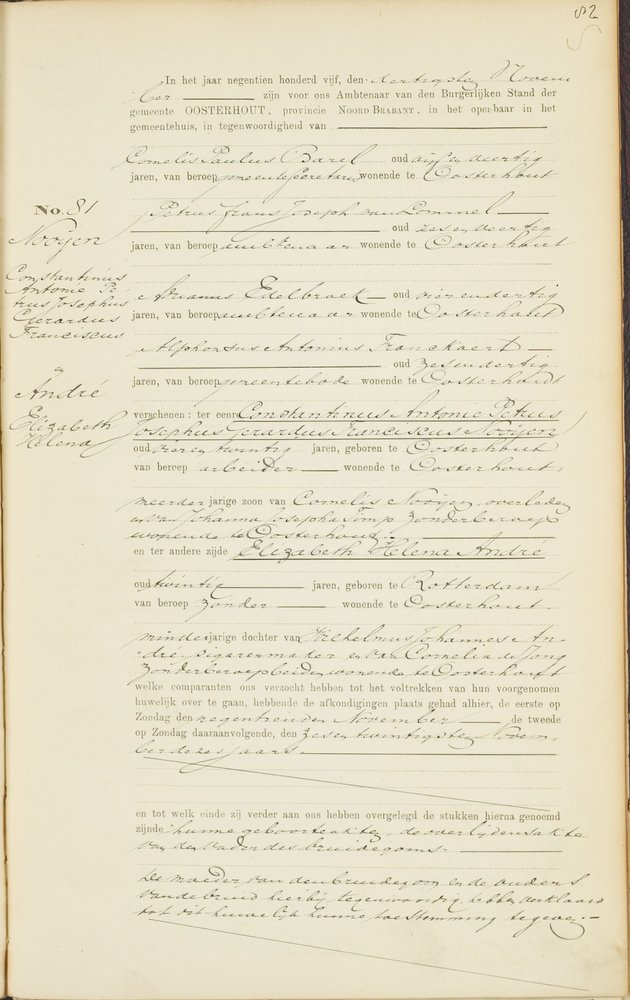 82
In het jaar negentien honderd vijf, den dertigsten Novem
ber zijn voor ons Ambtenaar van den Burgerlijken Stand der
gemeente OOSTERHOUT, provincie NOORD BRABANT, in het openbaar in het
gemeentehuis, in tegenwoordigheid van
Cornelis Paulus Barel oud vijf en veertig
jaren, van beroep gemeente Secretaris wonende te Oosterhout
No. 81
Petrus Frans Joseph van Dommel
oud zes en veertig
jaren, van beroep ambtenaar wonende te Oosterhout
Nooijen
Constantinus
Antonie Pe
trus Josephus
Gerardus
Franciscus
Adrianus Edelbroek oud vier en dertig
jaren, van beroep ambtenaar wonende te Oosterhout
Alphonsus Antonius Franckaert
oud zes en dertig
jaren, van beroep gemeentebode wonende te Oosterhout
en
André
Elizabeth
Helena
verschenen: ter eenre Constantinus Antonie Petrus
Josephus Gerardus Franciscus Nooijen
oud vier en twintig jaren, geboren te Oosterhout
van beroep arbeider wonende te Oosterhout,
meerderjarige zoon van Cornelis Nooijen, overleden
en van Johanna Josepha Timp zonder beroep
wonende te Oosterhout;
en ter andere zijde Elizabeth Helena André
oud twintig jaren, geboren te Rotterdam
van beroep zonder wonende te Oosterhout.
minderjarige dochter van Wilhelmus Johannes An-
dré, sigarenmaker en van Cornelia de Jong
zonder beroep beiden wonende te Oosterhout
welke comparanten ons verzocht hebben tot het voltrekken van hun voorgenomen
huwelijk over te gaan, hebbende de afkondigingen plaats gehad alhier, de eerste op
Zondag den negentienden November de tweede
op Zondag daaraanvolgende, den zes en twintigsten Novem
ber dezes jaars.
en tot welk einde zij verder aan ons hebben overgelegd de stukken hierna genoemd
zijnde hunne geboorteakten, de overlijdensakte
van den vader des bruidegoms.
De moeder van den bruidegom en de ouders
van de bruid hierbij tegenwoordig hebben verklaard
tot dit huwelijk hunne toestemming te geven.